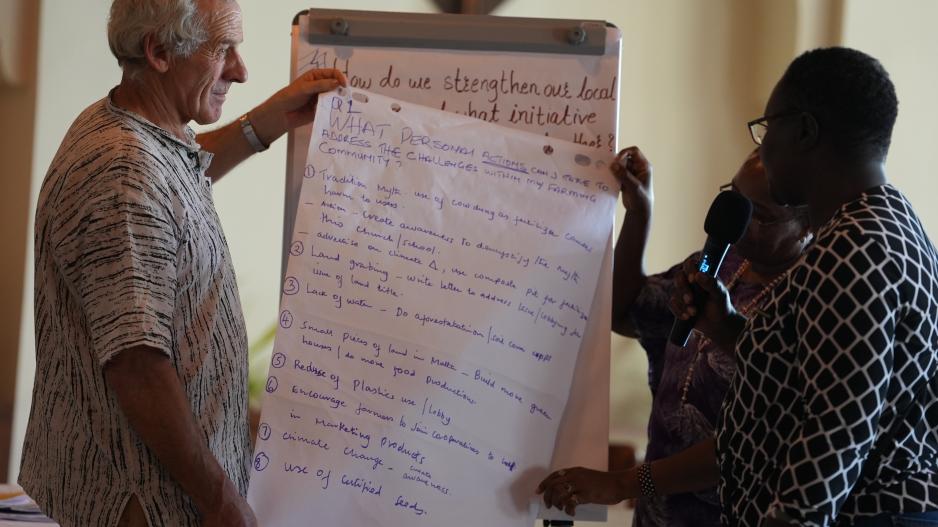 How do we strengthen our local
what initiative
that?
Q1
WHAT PERSONAL ACTIONS CAN I TAKE TO
ADDRESS THE CHALLENGES WITHIN MY FARMING
COMMUNITY?
① Tradition Myth - use of cow dung as fertilizer causes
harm to users.
- Action - Create awareness to demystify the myth
this church/school.
- advertise on climate Δ, use compost pit for fertilizer
② Land grabbing - write letter to address issue/lobbying the
use of land title.
③ Lack of water - Do afforestation/
④ Small pieces of land in Malta - Build more green
houses/do more food production
⑤ Reduse of Plastics use/lobby
⑥ Encourage farmers to Join cooperatives to help
in Marketing products
⑦ climate change - create
awareness.
⑧ use of Certified Seeds.